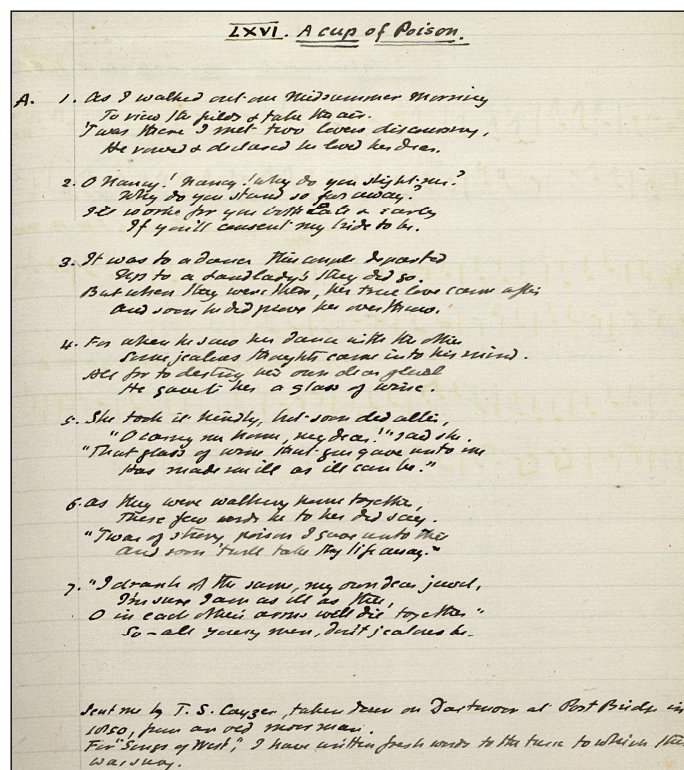 LXVI. A cup of Poison.
A. 1. As I walked out one Midsummer Morning
To view the fields & take the air.
'Twas there I met two lovers discoursing,
He vowed & declared he loved her dear.
2. O Nancy! Nancy! why do you slight me?
Why do you stand so far away.
I'll worke for you both late & early
If you'll consent my bride to be.
3. It was to a dance this couple departed
Up to a Landlady's they did go.
But when they were there, her true love came after
And soon he did prove her overthrow.
4. For when he saw her dance with the other
Some jealous thoughts came into his mind.
All for to destroy his own dear
He gave to her a glass of wine.
5. She took it kindly, but soon did alter,
"O carry me home, my dear!" said she.
"That glass of wine that you gave unto me
Has made me ill as ill can be."
6. As they were walking home together,
These few words he to her did say.
"'Twas of strong poison I gave unto thee
And soon 'twill take thy life away."
7. "I drank of the same, my own dear jewel,
I'm sure I am as ill as thee,
O in each others arms we'll die together"
So - all young men, don't jealous be.
Sent me by T. S. Cayzer, taken down on Dartmoor at Post Bridge in
1850, from an old moor man.
For "Songs of West," I have written fresh words to the tune to which this
was sung.